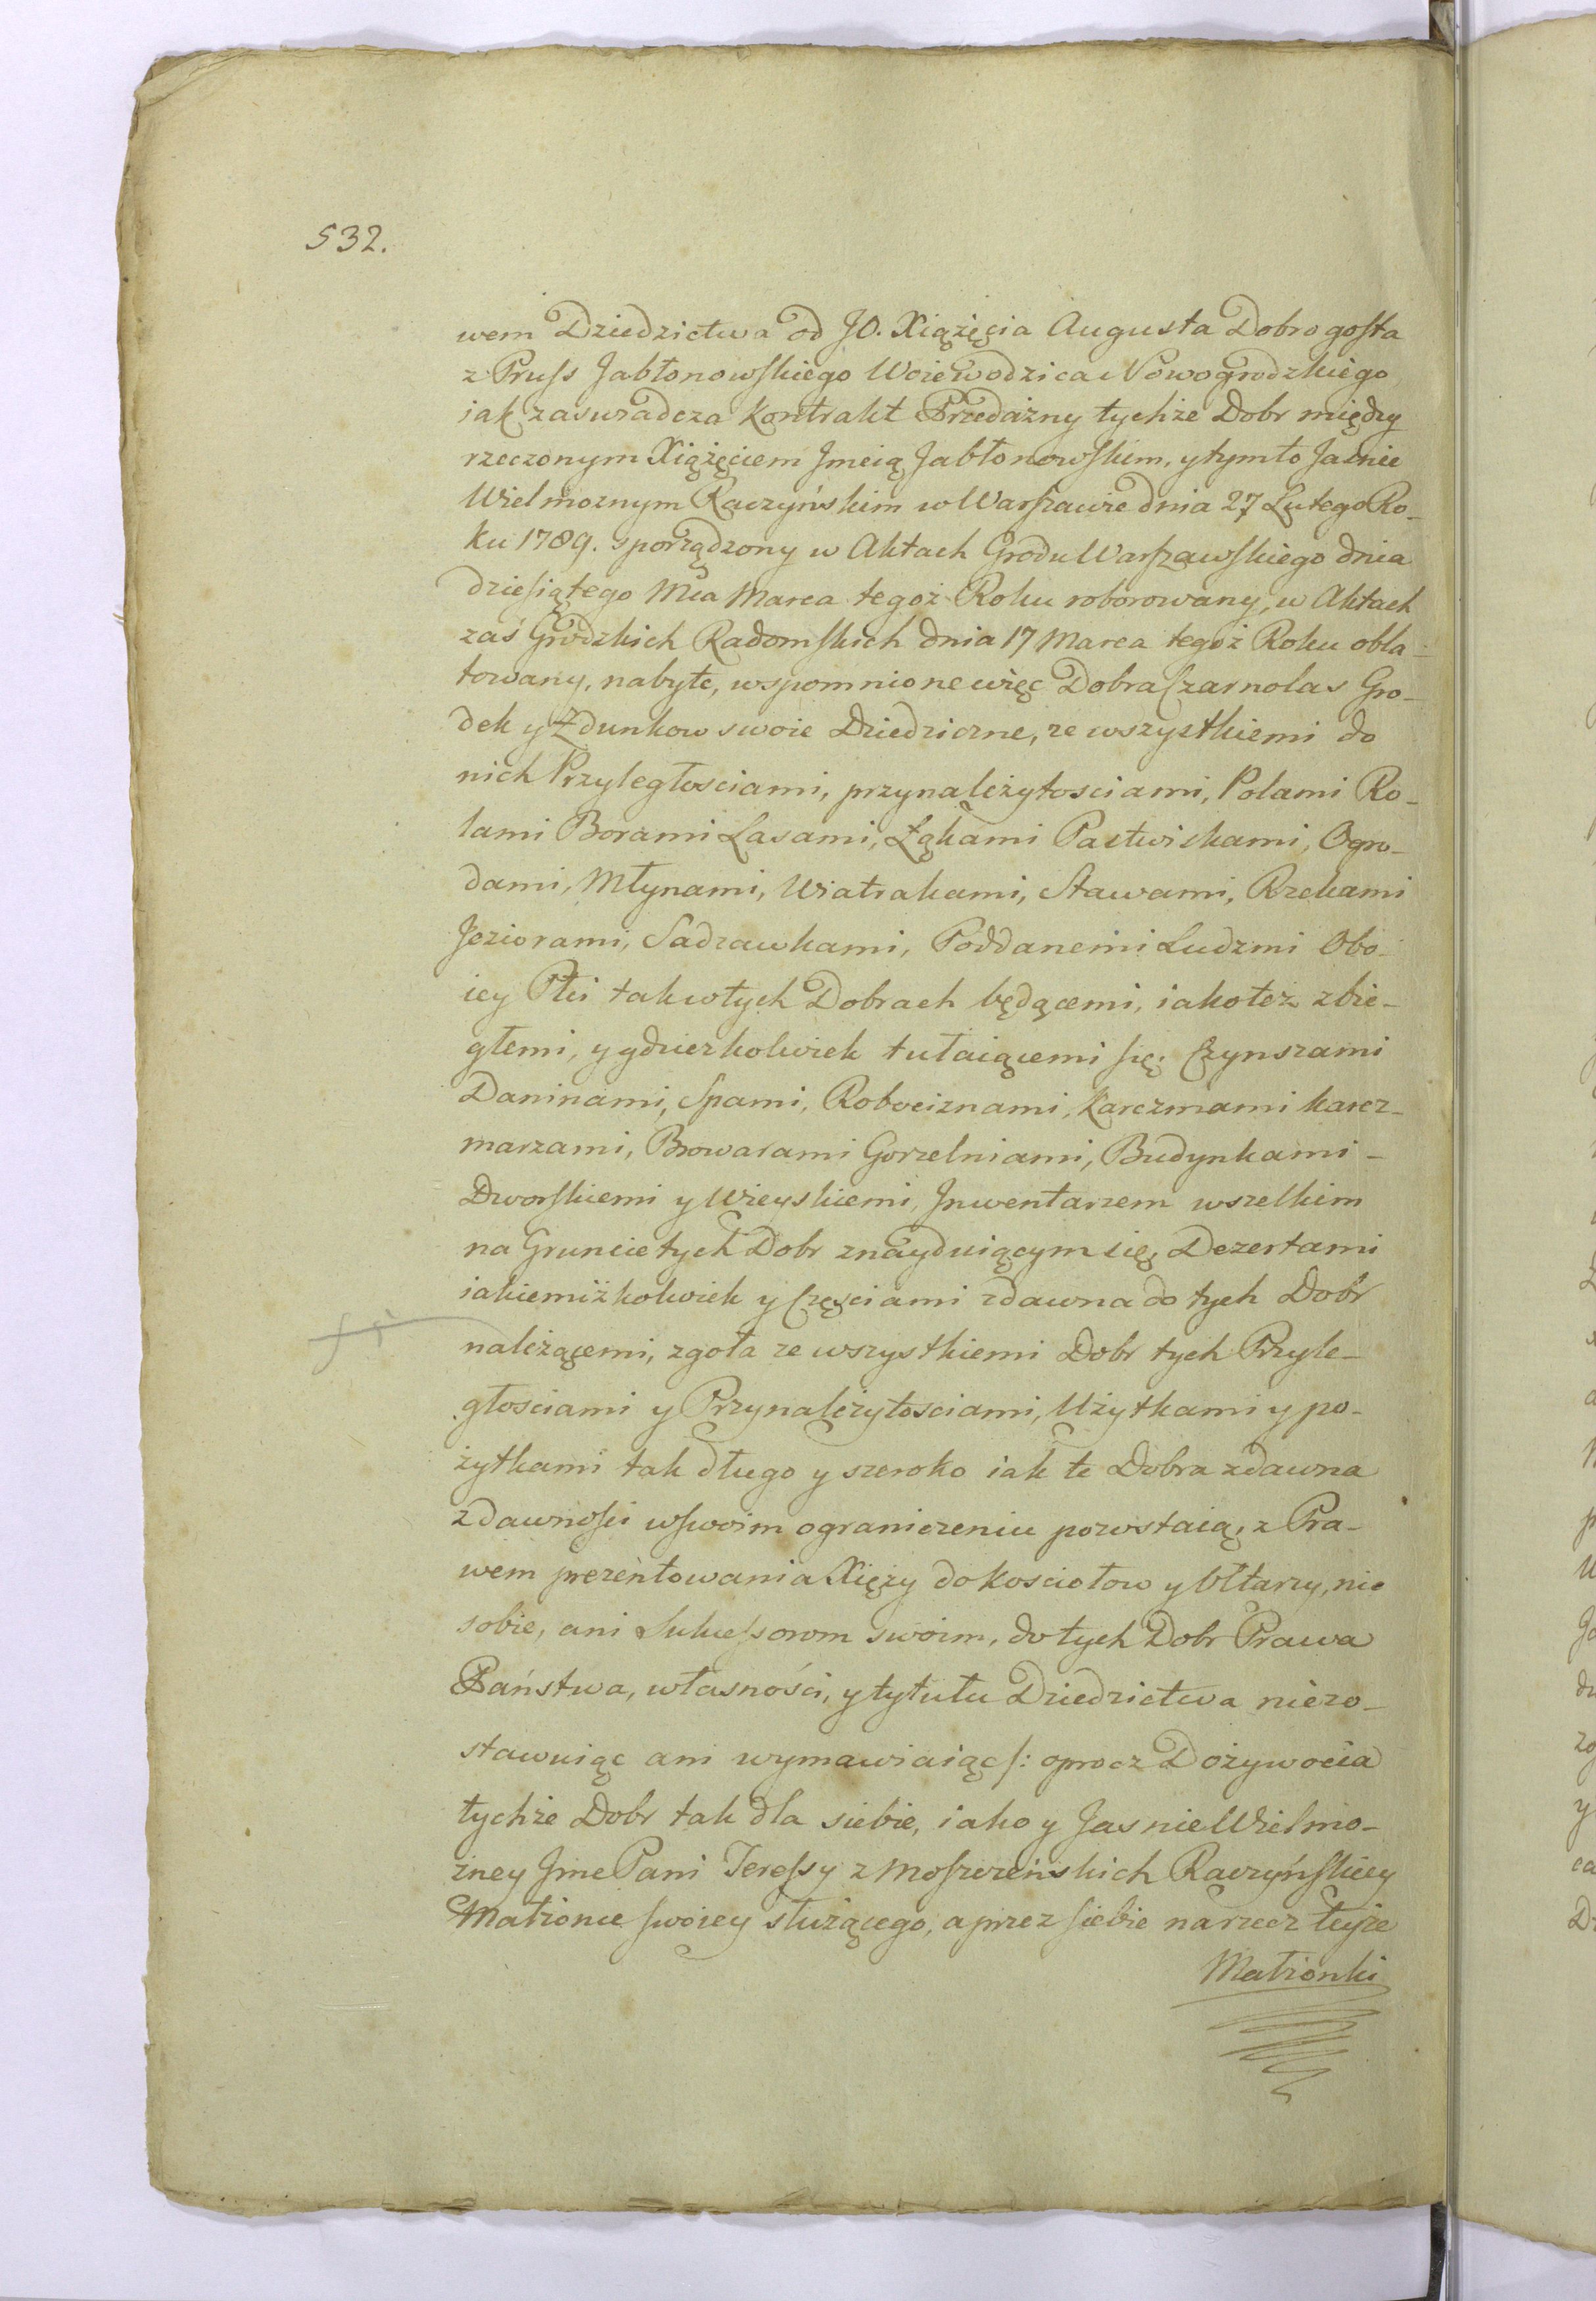 532.
wem Dziedzictwa od JO. Xiążęcia Augusta Dobrogosta
z Pruss Jabłonowskiego Woiewodzica Nowogrodzkiego
iak zaswiadcza Kontrakt Przedażny tychże Dobr między
rzeczonym Xiążęciem Jmcią Jabłonowskim, y tymto Jasnie
Wielmoznym Raczyńskim w Warszawie dnia 27 Lutego Ro-
ku 1789. sporządzony w Aktach Grodu Warszawskiego dnia
dziesiątego Mca Marca tegoż Roku roborowany, w Aktach
zaś Grodzkich Radomskich dnia 17 Marca tegoż Roku obla-
towany, nabyte, wspomnione więc Dobra Czarnolas Gro-
dek y Zdunkow swoie Dziedziczne, ze wszystkiemi do
nich Przyległosciami, przynależytosciami, Polami Ro-
lami Borami Lasami, Łąkami Pastwiskami, Ogro-
dami, Młynami, Wiatrakami, Stawami, Rzekami
Jeziorami, Sadzawkami, Poddanemi Ludzmi Obo-
iey Płci tak w tych Dobrach będącemi, iako też zbie-
głemi, y gdzieżkolwiek tułaiącemi się; Czynszami
Daninami, Spami, Robociznami, Karczmami karcz-
marzami, Browarami Gorzelniami, Budynkami -
Dworskiemi y Wieyskiemi, Jnwentarzem wszelkim
na Gruncie tych Dobr znayduiącym się, Dezertami
iakiemiżkolwiek y Częsciami zdawna do tych Dobr
należącemi, zgoła ze wszystkiemi Dobr tych Przyle-
głosciami y Przynależytosciami, Użytkami y po-
żytkami tak długo y szeroko iak te Dobra zdawna
z dawności w swoim ograniczeniu pozostaią, z Pra-
wem prezentowania Xięży do Kosciołow y Ołtarzy, nic
sobie, ani Sukcessorom swoim, do tych Dobr Prawa
Państwa, własności, y tytułu Dziedzictwa niezo-
stawuiąc ani wymawiaiąc /: oprocz Dożywocia
tychże Dobr tak dla siebie, iako y Jasnie Wielmo-
żney Jmc Pani Teressy z Moszczeńskich Raczyńskiey
Małżonce swoiey służącego, a przez siebie na rzecz teyże
Małżonki